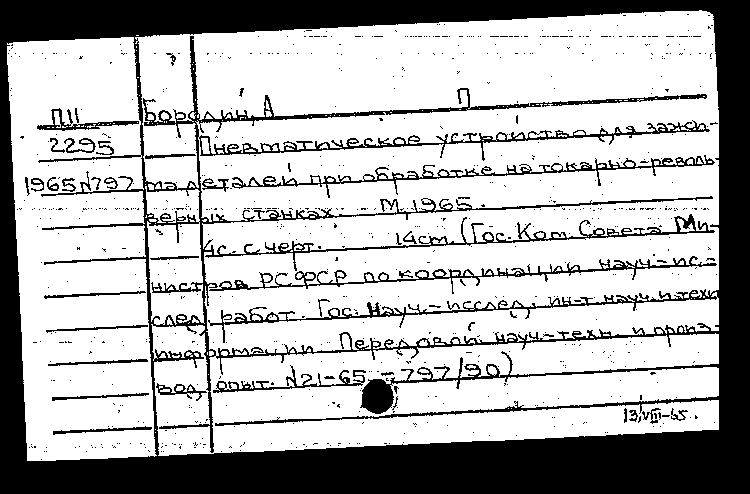 П11 Бородин, А П
2295 Пневматическое устройство для зажи-
1965 №797 ма деталей при обработке на токарно-револь-
верных станках. - М, 1965.
4с. с черт. 14см. (Гос. Ком. Совета Ми-
нистров РСФСР по координации науч-ис.-
след. работ. Гос. науч.-исслед. ин-т науч. и техн
информации Передовой науч-техн. и произ-
вод. опыт. №21-65 = 797/90)
13/VIII-65.